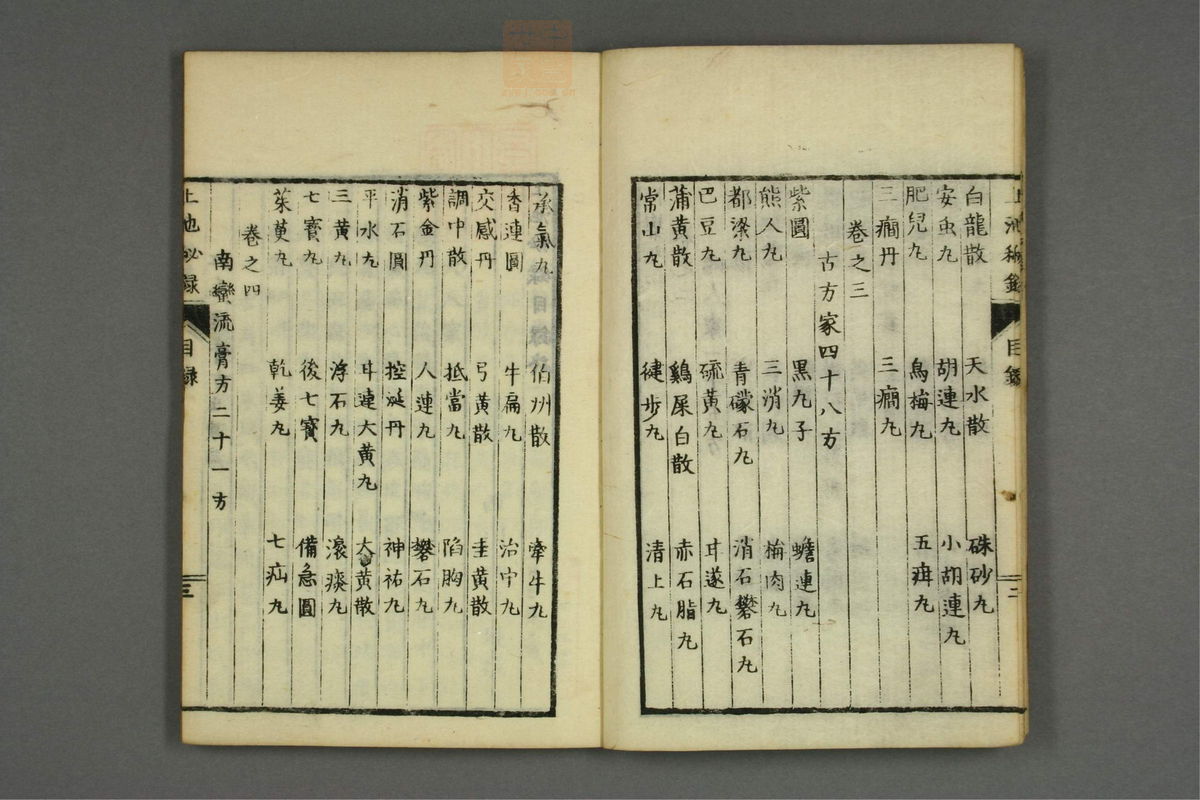 白龍散　天水散　硃砂丸
安虫丸　胡連丸　小胡連丸
肥兒丸　烏梅丸　五疳丸
三癇丹　三癇丸
卷之三
古方家四十八方
紫圓　黒丸子　蟾連丸
熊人丸　三消丸　梅肉丸
都梁丸　青礞石丸　消石礬石丸
巴豆丸　硫黄丸　甘遂丸
蒲黄散　鷄屎白散　赤石脂丸
常山丸　健步丸　清上丸
上池秘録　目録　二
承氣丸　伯州散　牽牛丸
香連圓　牛扁丸　治中丸
交感丹　弓黄散　圭黄散
調中散　抵當丸　陷胸丸
紫金丹　人連丸　礬石丸
消石圓　控涎丹　神祐丸
平水丸　甘連大黄丸　大黄散
三黄丸　浮石丸　滾痰丸
七寳丸　後七寳　備急圓
茱萸丸　乾姜丸　七疝丸
卷之四
南蠻流膏方二十一方
上池秘録　目録　三